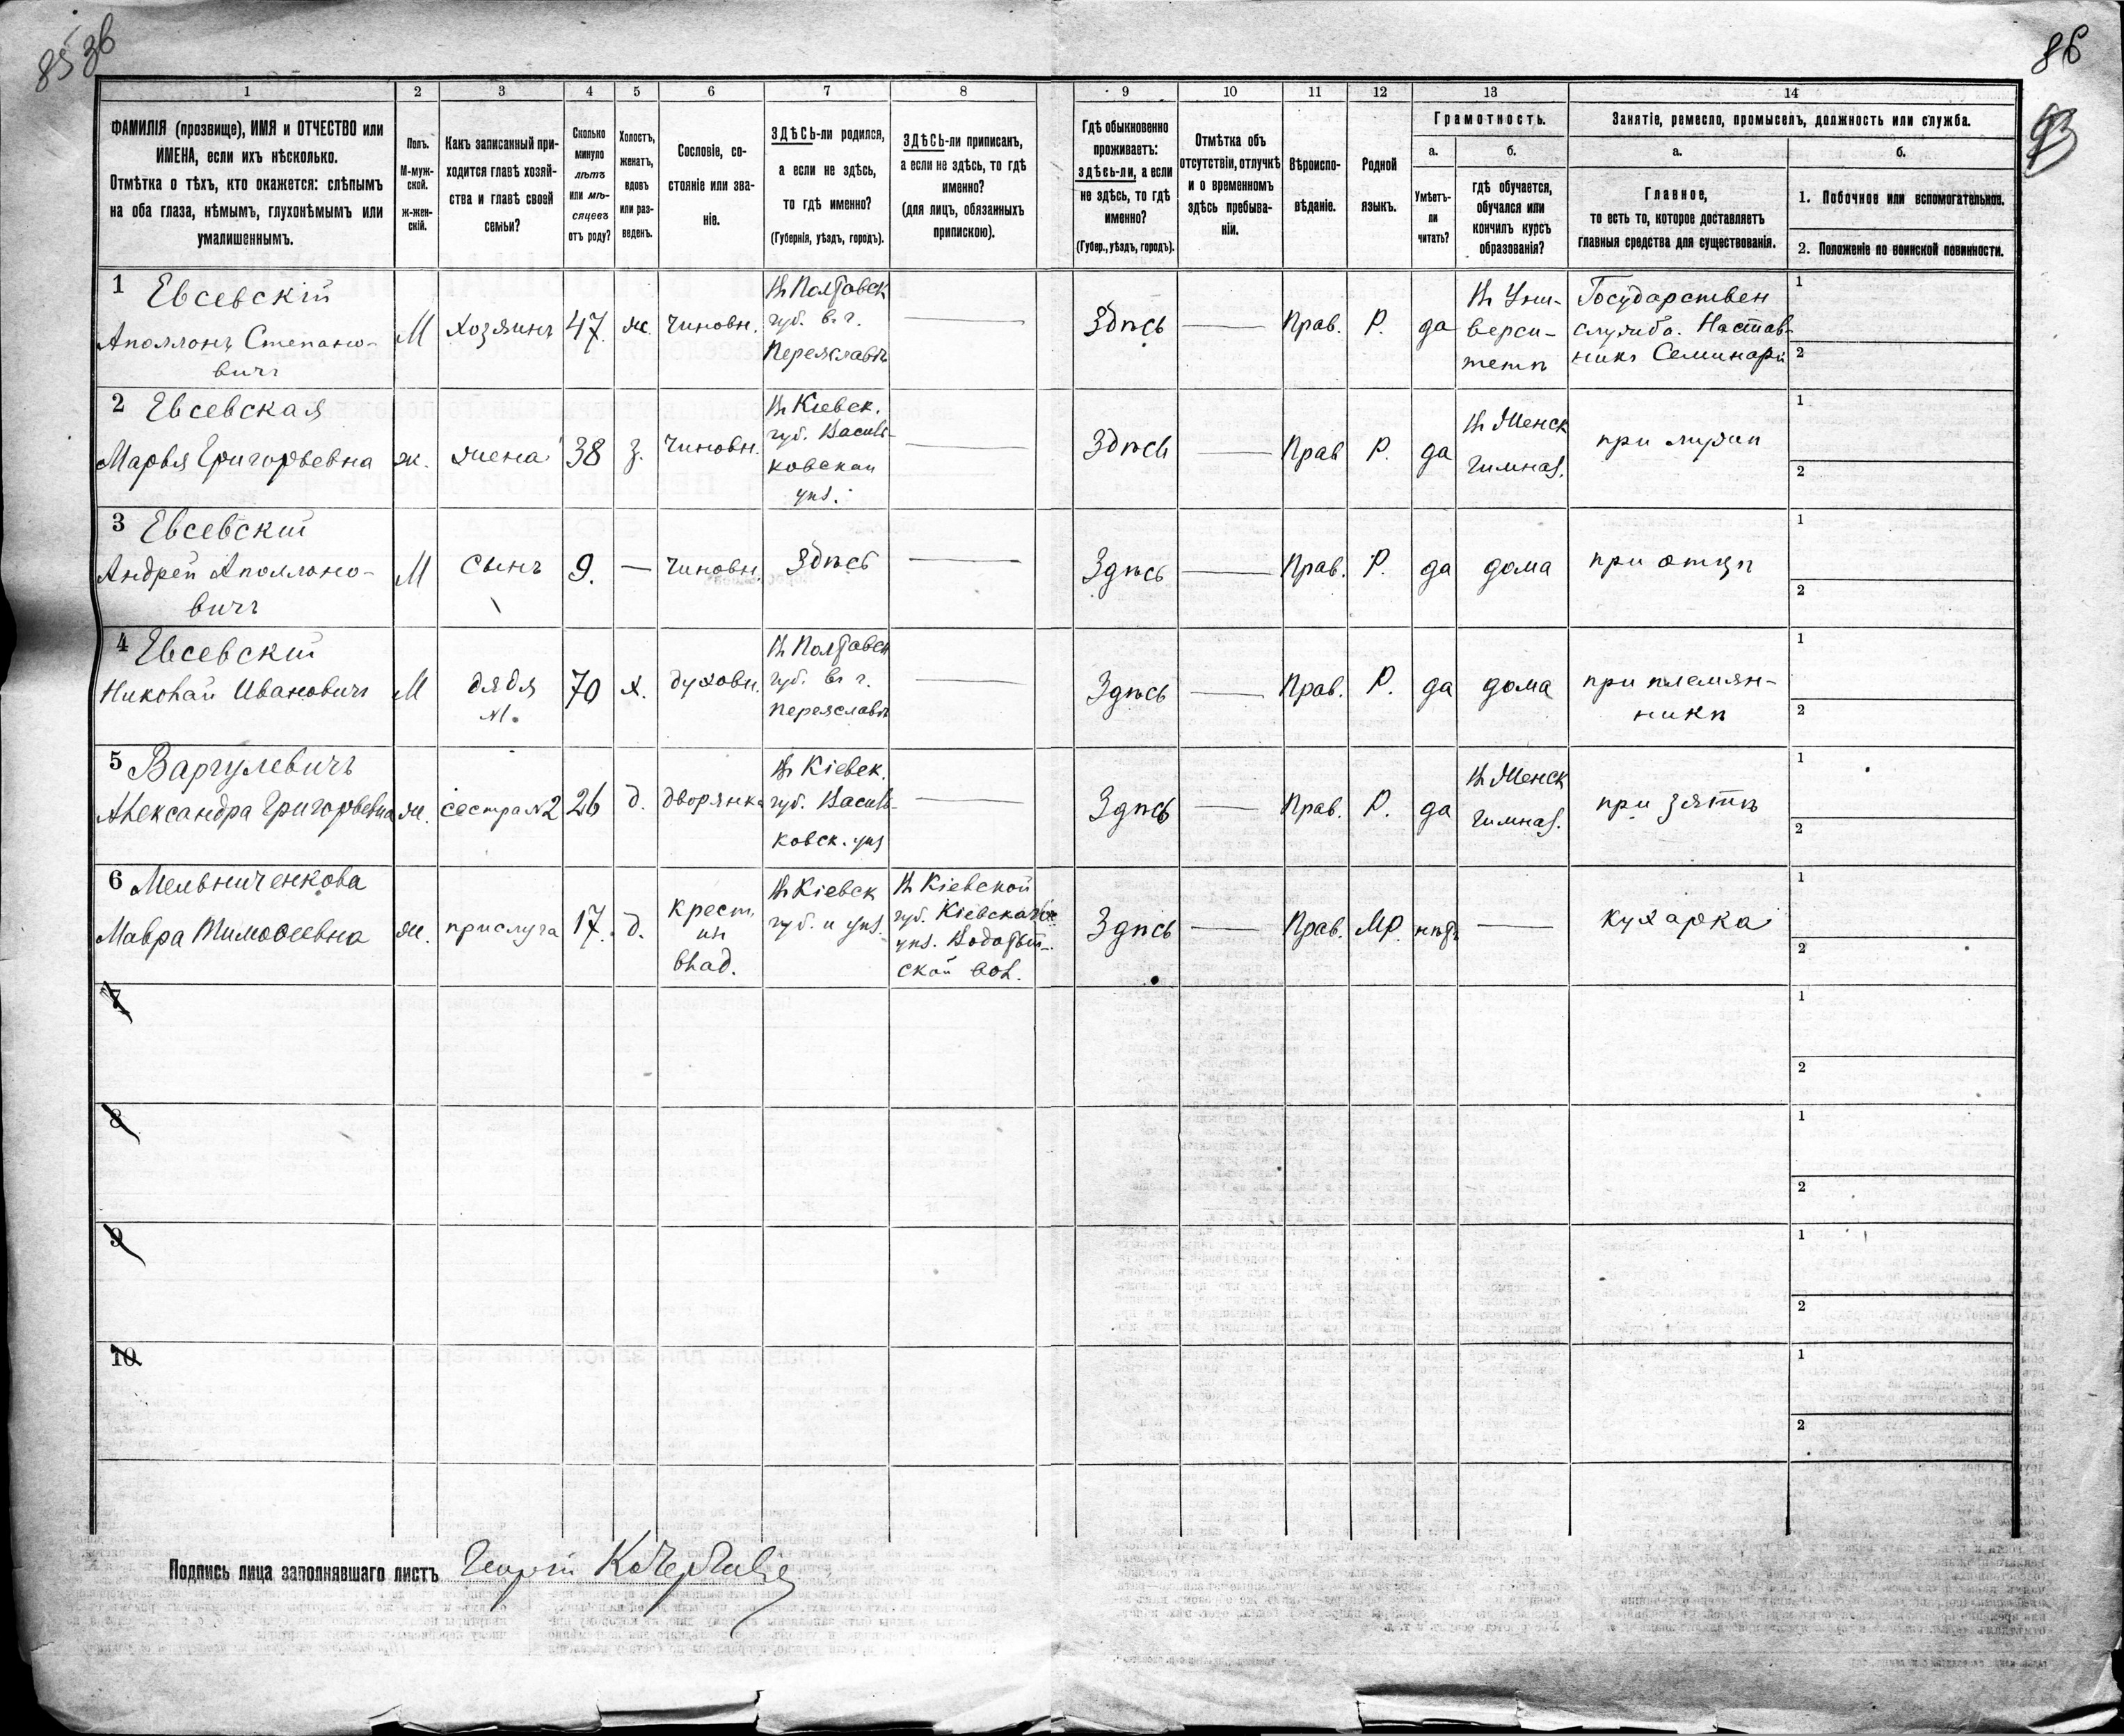 85 36
86
93
1
2
3
4
5
6
7
8
9
10
11
12
13
14
ФАМИЛІЯ (прозвище), ИМЯ и ОТЧЕСТВО или
ИМЕНА, если ихъ нѣсколько.
Отмѣтка о тѣхъ, кто окажется: слѣпымъ
на оба глаза, нѣмымъ, глухонѣмымъ или
умалишеннымъ.
Полъ.
М-муж-
ской.
ж-жен-
скій.
Какъ записанный при-
ходится главѣ хозяй-
ства и главѣ своей
семьи?
Сколько
минуло
лѣтъ
или мѣ-
сяцевъ
отъ роду?
Холостъ,
женатъ,
вдовъ
или раз-
веденъ.
Сословіе, со-
стояніе или зва-
ніе.
ЗДѢСЬ-ли родился,
а если не здѣсь,
то гдѣ именно?
(Губернія, уѣздъ, городъ).
ЗДѢСЬ-ли приписанъ,
а если не здѣсь, то гдѣ
именно?
(для лицъ, обязанныхъ
припискою).
Гдѣ обыкновенно
проживаетъ:
здѣсь-ли, а если
не здѣсь, то гдѣ
именно?
(Губер., уѣздъ, городъ).
Отмѣтка объ
отсутствіи, отлучкѣ
и о временномъ
здѣсь пребыва-
ніи.
Вѣроиспо-
вѣданіе.
Родной
языкъ.
Грамотность.
а.
Умѣетъ-
ли
читать?
б.
гдѣ обучается,
обучался или
кончилъ курсъ
образованія?
Занятіе, ремесло, промыселъ, должность или служба.
а.
Главное,
то есть то, которое доставляетъ
главныя средства для существованія.
б.
1. Побочное или вспомогательное.
2. Положеніе по воинской повинности.
1 Евсевскій
Аполлонъ Степано-
вичъ
М
хозяинъ
47.
ж.
чиновн.
Въ Полтавск
губ. въ г.
Переяславѣ
Здѣсь
Прав.
Р.
да
Въ Уни-
верси-
тетѣ
Государствен
служба. Настав-
никъ Семинаріи
1
2
2 Евсевская
Марья Григорьевна
ж.
жена
38
з.
чиновн.
Въ Кіевск.
губ. Василь-
ковскаи
уѣз.
Здѣсь
Прав
Р.
да
Въ Женск
гимназ.
при мужѣ
1
2
3 Евсевскій
Андрей Аполлоно-
вичъ
М
сынъ
9.
чиновн.
Здѣсь
Здѣсь
Прав.
Р.
да
дома
при отцѣ
1
2
4 Евсевскій
Николай Ивановичъ
М
дядя
М.
70
х.
духовн.
Въ Полтавск
губ. въ г.
Переяславѣ
Здѣсь
Прав.
Р.
да
дома
при племян-
никѣ
1
2
5 Варгулевичъ
Александра Григорьевна
ж.
сестра №2
26
д.
дворянка
Въ Кіевск.
губ. Василь-
ковск. уѣз
Здѣсь
Прав.
Р.
да
Въ Женск
гимназ.
при зятѣ
1
2
6 Мельниченкова
Мавра Тимоѳеевна
ж.
прислуга
17.
д.
крест.
из
влад.
Въ Кіевск
губ. и уѣз.
Въ Кіевской
губ. Кіевскаго
уѣз.
ской вол.
Здѣсь
Прав.
МР.
нѣтъ
кухарка
1
2
7
1
2
8
1
2
9
1
2
10
1
2
Подпись лица заполнявшаго листъ Георгій